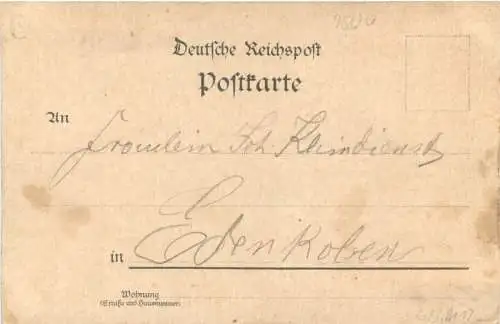 Deutsche Reichspost
Postkarte
An
Fräulein Joh. Kleindienst
in Edenkoben
Wohnung
(Straße und Hausnummer)